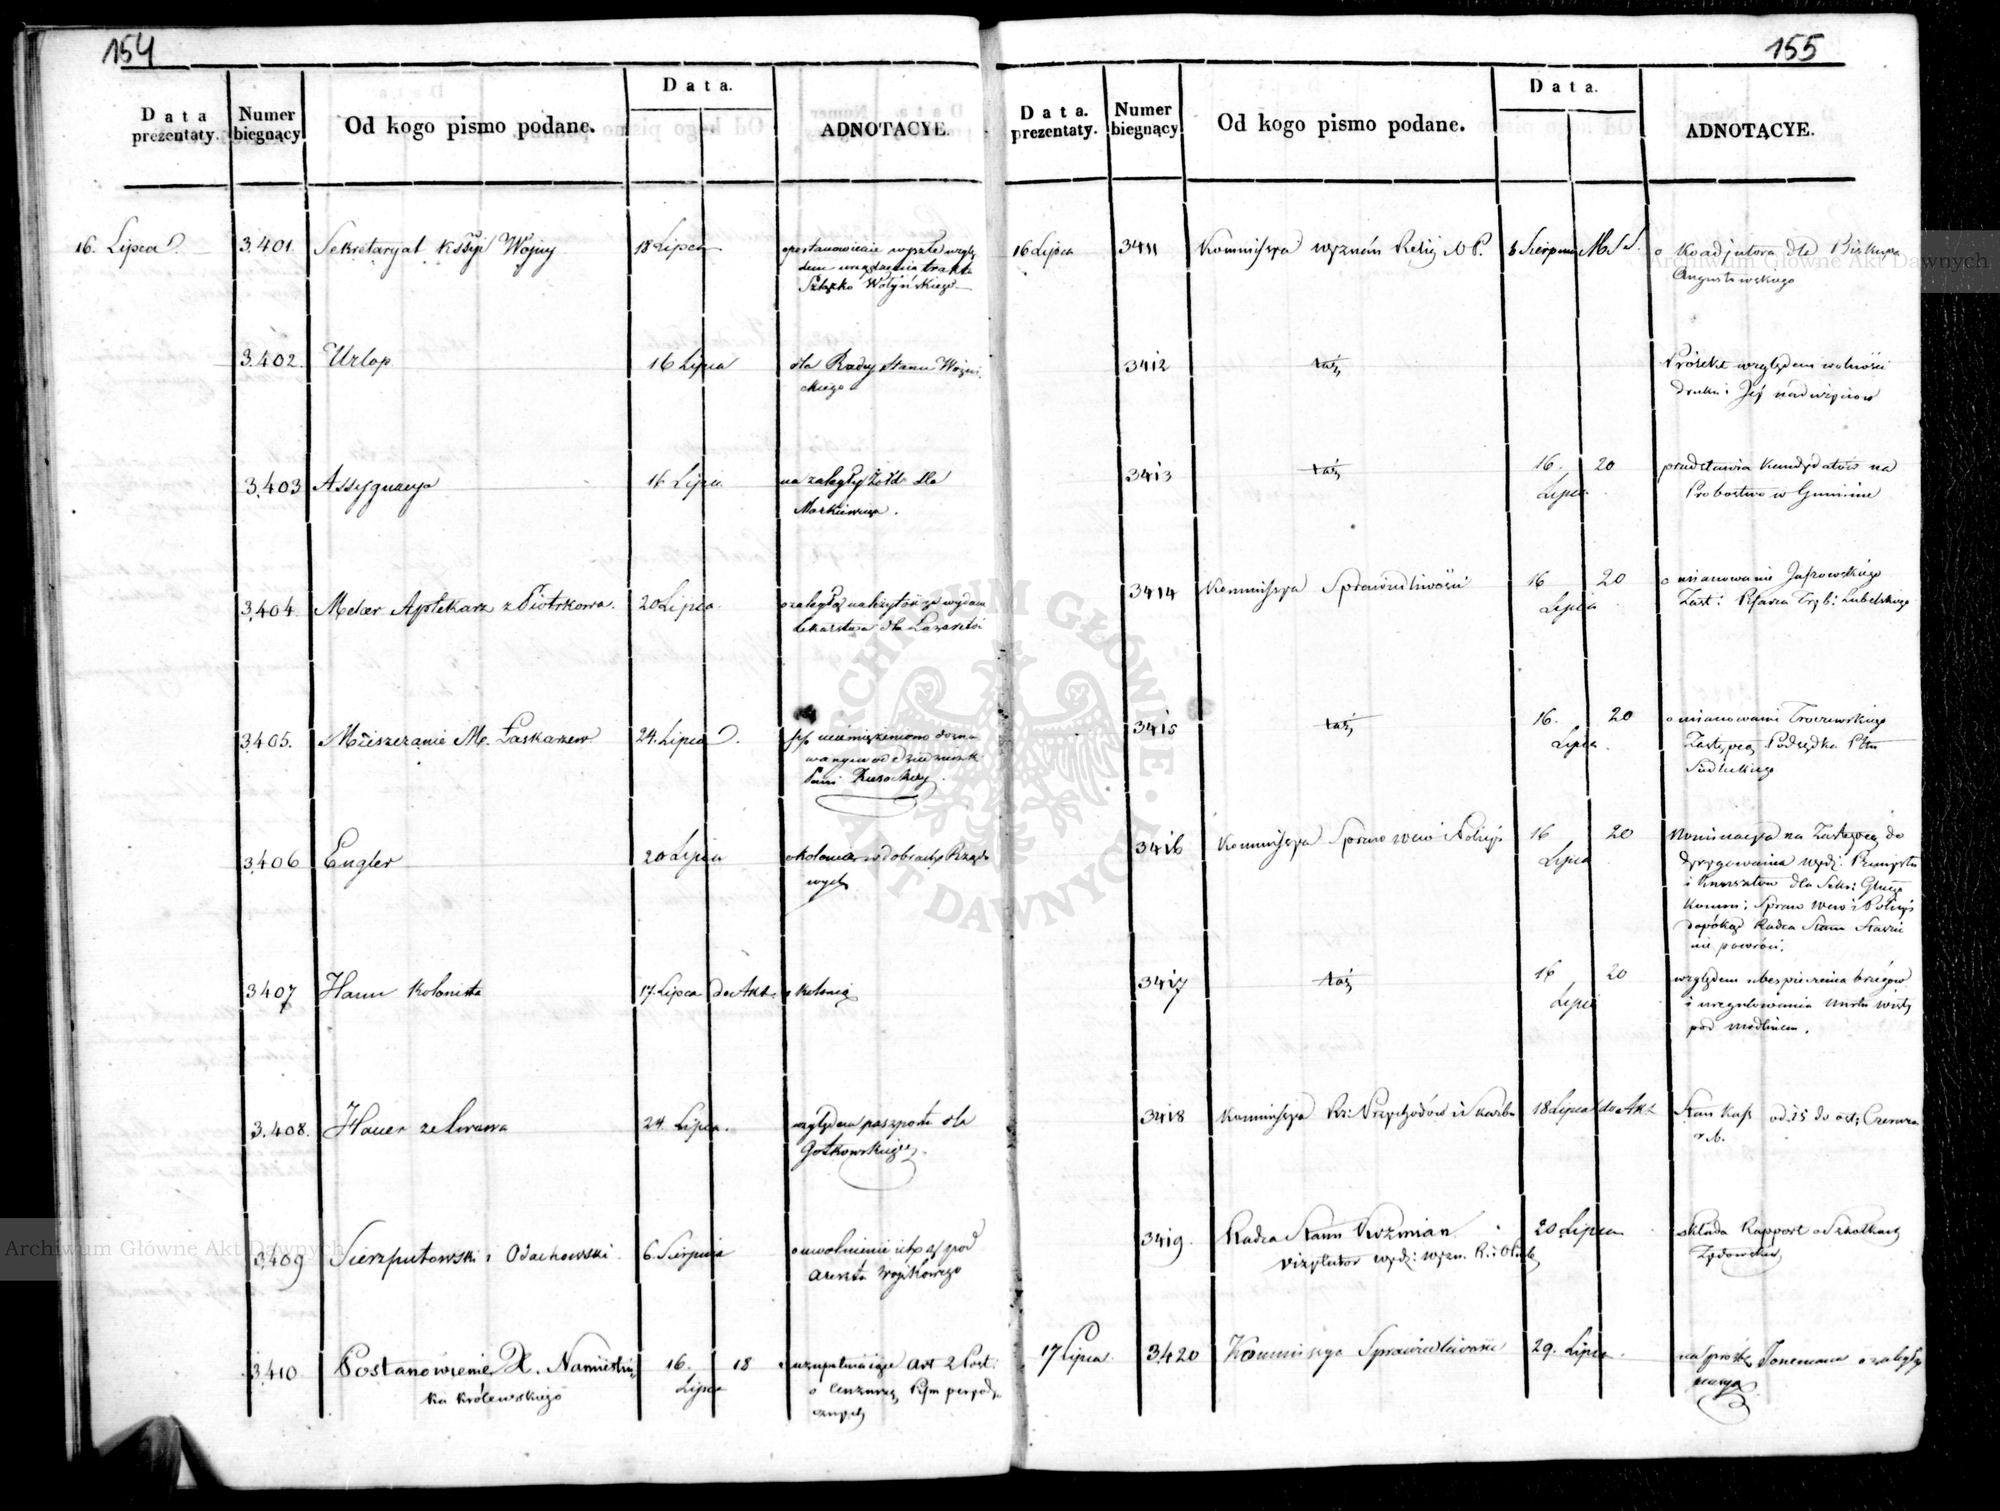 154
Data prezentaty.
Numer biegnący
Od kogo pismo podane.
Data.
ADNOTACYE.
16. Lipca
3401.
Sekretaryat Kssyi Wojny
18 Lipca
postanowienie wzglę
dem urządzenia traktu
Wołyńskiego
3402.
Urlop
16 Lipca
dla Radcy Stanu
ckiego
3403
Assygnacya
16 Lipca
na zaległy żołd dla
Markiewicza.
3404.
Aptekarz z Piotrkowa.
20 Lipca.
lekarstwa dla Lazaretów
3405.
Mieszczanie M. Łaskarzew
24. Lipca
Pani
3406
Engler
20 Lipca
o kolonią w dobrach Rządo
wych
3407
Hann Kolonista
17. Lipca
do Akt.
o kolonią
3408.
Hauer ze Lwowa
24. Lipca.
względem paszportu dla
3409
Sierzputowski i Odachowski.
6. Sierpnia
o uwolnienie ich z pod
aresztu wojskowego
3410
Postanowienie X. Namiestni
ka królewskiego
16. Lipca
18
uzupełniające art 2 Post:
o Cenzurze Pism peryody
cznych
155
Data. prezentaty.
Numer biegnący
Od kogo pismo podane.
Data.
ADNOTĄCYE.
16 Lipca
3411
Kommissya wyznań Relig i O P.
Sierpnia
o Koadjutora dla Biskupa
Augustowskiego
3412
taż
Projekt względem wolności
druku i Jej nadużyciów
3413
taż
16. Lipca
20
przedstawia kandydatów na
Probostwo w
3414
Kommissya Sprawiedliwości
16 Lipca
20
o mianowanie
Zast: Pisarza Tryb: Lubelskiego
3415
taż
16. Lipca.
20
o mianowanie
Zastępcą Podsędka Ptu
Siedleckiego
3416
Kommissya Spraw wew i Policyi
16 Lipca
20
Nominacya na Zastępcę do
dyrygowania wydz: Przemysłu
i Kunsztów dla Sekr:
Kommi: Spraw wew i Policyi
dopókąd Radca Stanu Staszic
nie powróci.
3417
taż
16 Lipca
20
względem ubezpieczenia brzegów
i uregulowania nurtu wisły
pod modlinem.
3418
Kommissya Rz: Przychodów i Skarbu
18 Lipca
do Akt
Stan Kass od 15 do ost: Czerwca
r. b.
3419.
Radca Stanu Koźmian
vizytator wydz: wyzn. R: i O P
20 Lipca
składa Rapport o Szkołkach
Żydowskich
17 Lipca.
3420
Kommissya Sprawiedliwości
29. Lipca.
na prozbę o zaległą
pensyą
Archiwum Główne Akt Dawnych
Archiwum Główne Akt Dawnych
ARCHIWUM GŁÓWNE AKT DAWNYCH